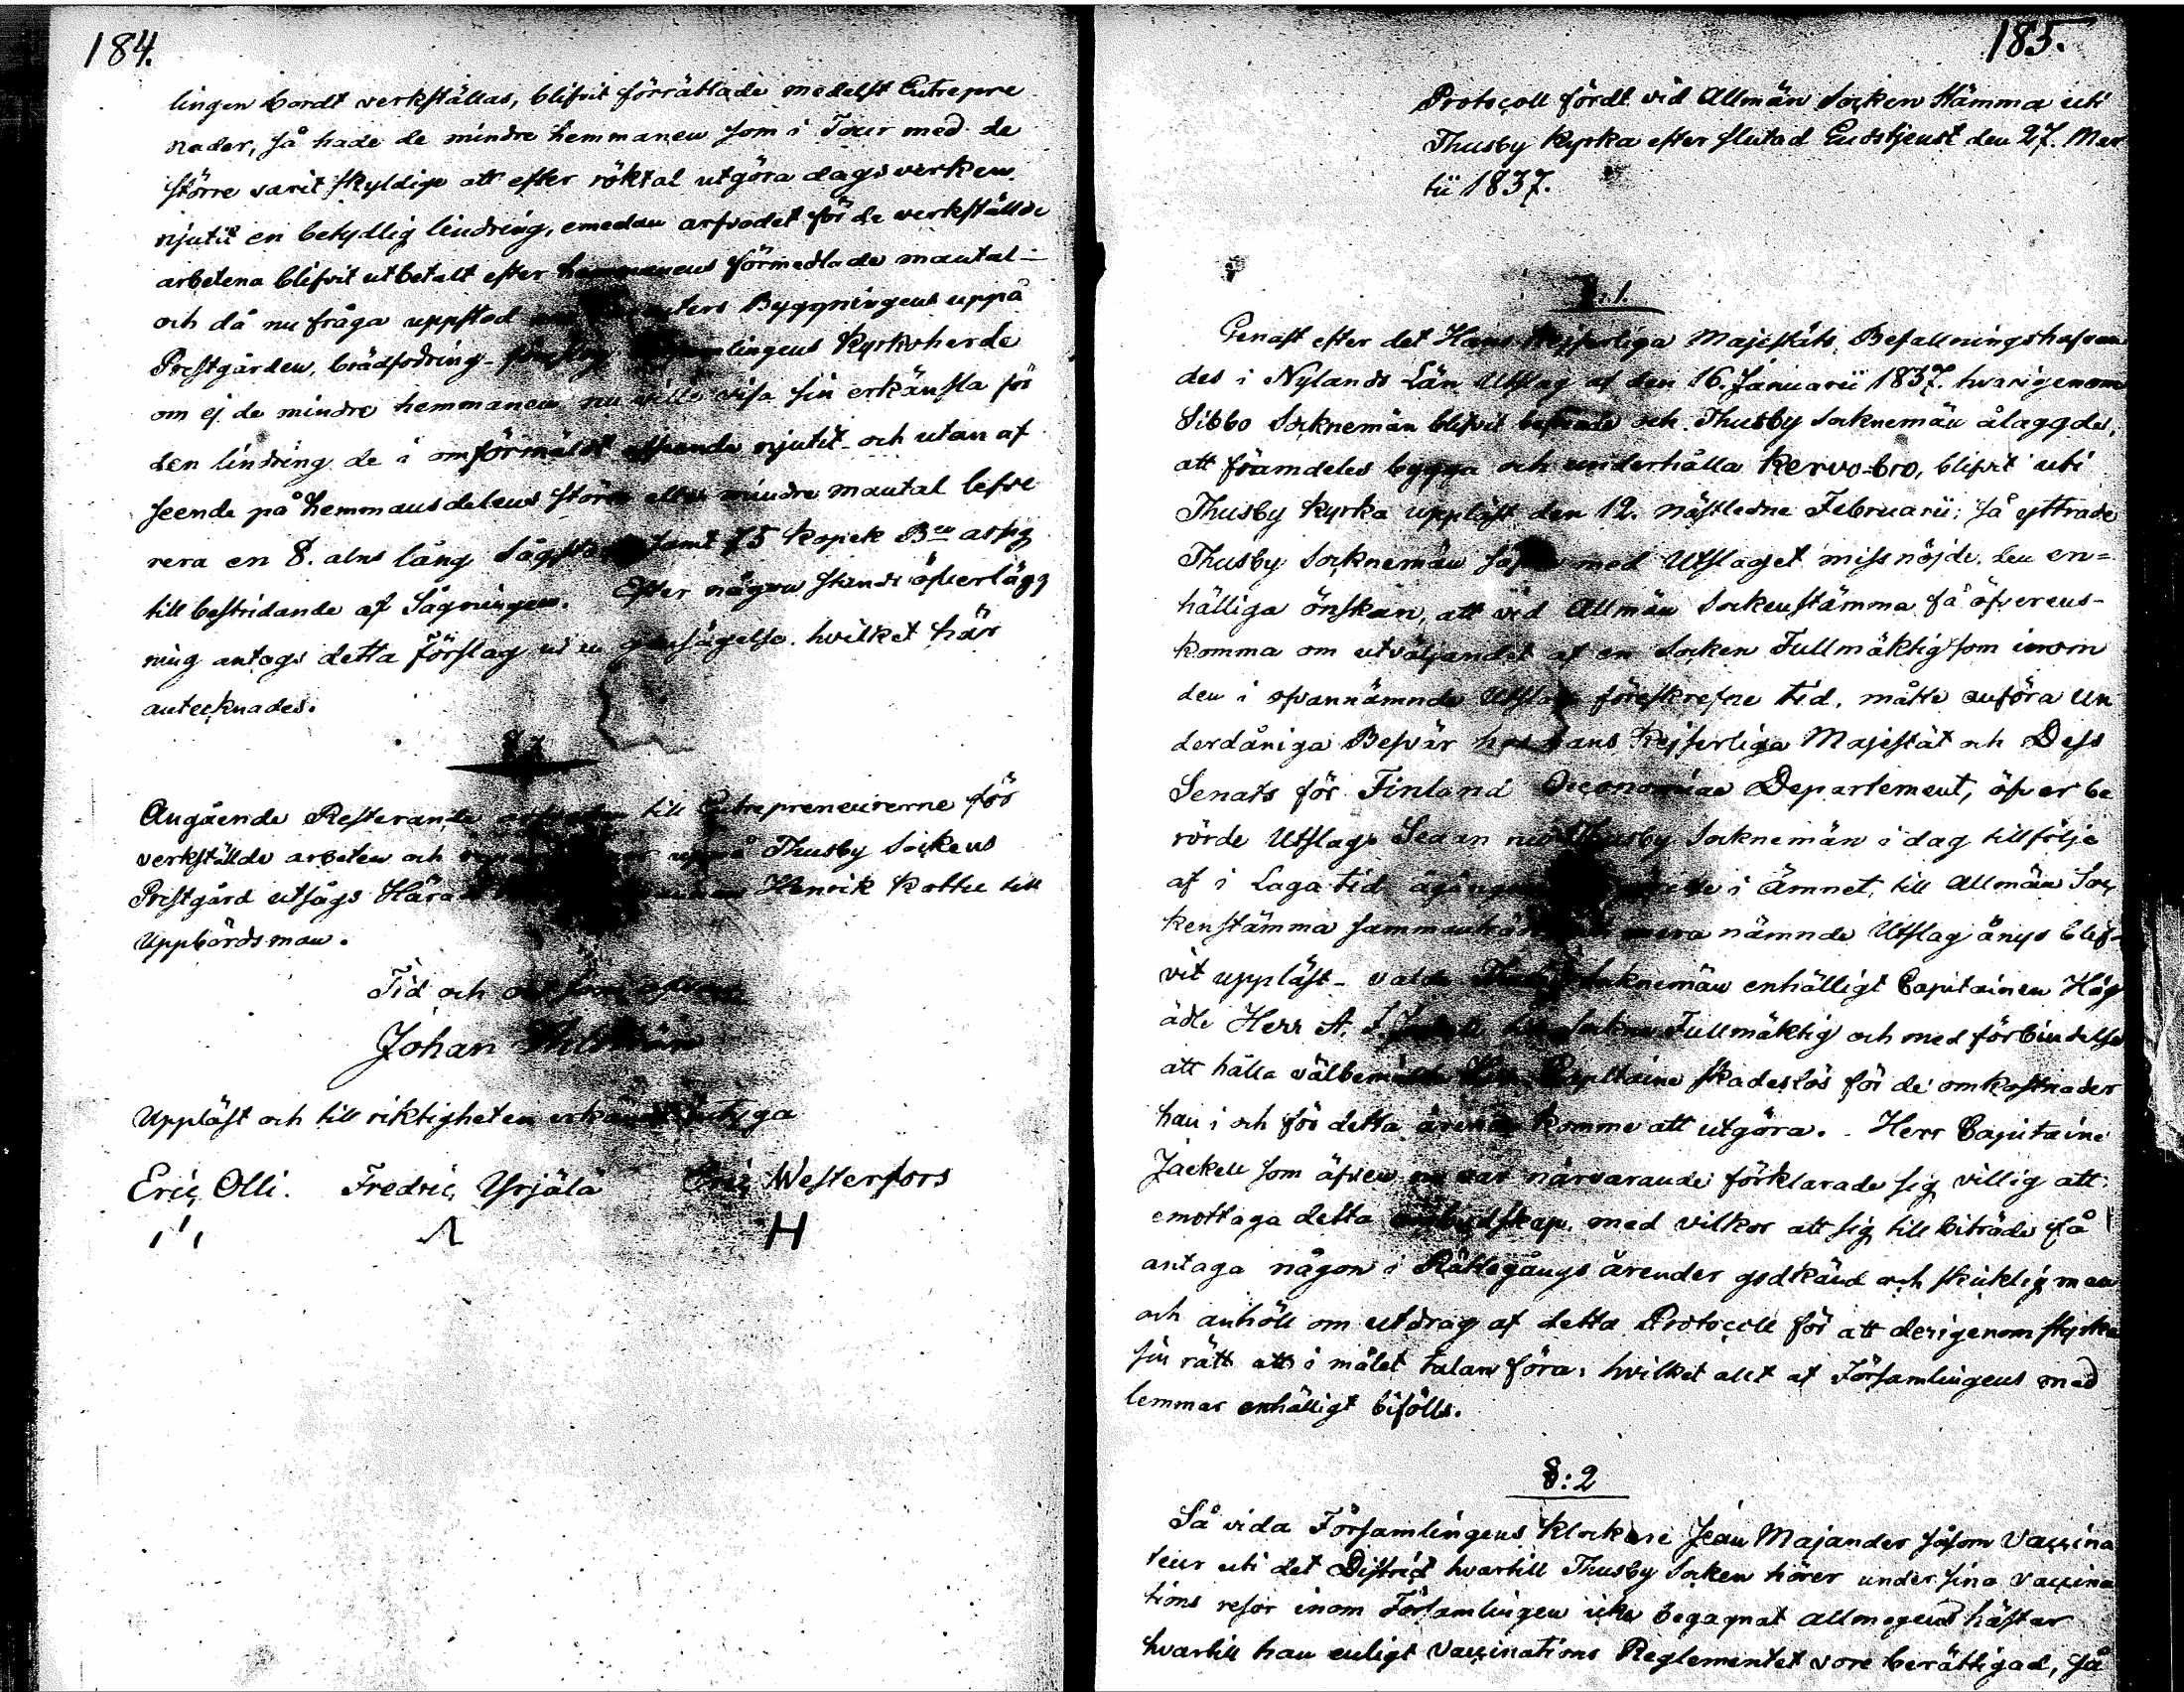 184.
lingen bordt verkställas, blifvit förrättade medelst Entrepre
nader, så hade de mindre hemmanen som i Tour med de
större varit skyldige att efter röktal utgöra dagsverken
njutit en betydlig lindring, emedan arfvodet för de verkställde
arbetena blifvit utbetalt efter hemmanens förmedlade mantal –
och då nu fråga uppstod Byggningens uppå
Prestgården, brädfodring – Församlingens Kyrkoherde
om ej de mindre hemmanen nu ville visa sin erkänsla för
den lindring de i omförmäldt afseende njutit – och utan af
seende på hemmansdelens större eller mindre mantal lefve
rera en 8. alns lång Sågstock samt 75 kopek Bco assig
till bestridande af Sågningen. Efter någon stunds öfverlägg
ning antogs detta förslag utan gensägelse. hvilket här
antecknades.
§ 7
Angående Resterande till Entrepreneurerne för
verkstälde arbeten och uppå Thusby Sockens
Prestgård utsågs Härads Henrik Kottu till
Uppbördsman.
Tid och ort som ofvan
Johan
Uppläst och till riktigheten erkändt, intyga
Eric Olli. Fredric Yrjälä Eric Westerfors
H
185.
Protocoll fördt vid Allmän Socken Stämma uti
Thusby Kyrka efter slutad Gudstjenst den 27. Mar
tii 1837.
§ 1.
Genast efter det Hans Kejserliga Majestäts Befallningshafvan
des i Nylands Län Utslag af den 16. Januarii 1837. hvarigenom
Sibbo Socknemän blifvit befriade och Thusby Socknemän ålaggdes,
att framdeles bygga och underhålla Kervo-bro, blifvit uti
Thusby Kyrka uppläst den 12. nästledne Februarii; så yttrade
Thusby Socknemän såsom med Utslaget missnöjde. den en=
hälliga önskan, att vid Allmän Sockenstämma få öfverens-
komma om utväljandet af en Socken Fullmäktig som inom
den i ofvannämnde Utslag föreskrefne tid, måtte anföra Un
derdåniga Besvär hos Hans Kejserliga Majestät och Dess
Senats för Finland Oeconomiae Departement, öfver be
rörde Utslag. Sedan nu Thusby Socknemän i dag tillfölje
af i Laga tid i Ämnet, till Allmän Soc
kenstämma nämnde Utslag ånyo blif-
vit uppläst – valde Thusby Socknemän enhälligt Capitainen Hög
ädle Herr A. F. Jackell till Socken Fullmäktig och med förbindelse
att hålla välbemälde Herr Capitaine skadeslös för de omkostnader
han i och för detta ärende komme att utgöra. Herr Capitaine
Jackell som äfven nu var närvarande förklarade sig villig att
emottaga detta ombudskap. med vilkor att sig till biträde få
antaga någon i Rättegångs ärender godkänd och skicklig man
och anhöll om utdrag af detta Protocoll för att derigenom styrka
sin rätt att i målet talan föra; hvilket allt af Församlingens med
lemmar enhälligt biföllls.
§:2
Så vida Församlingens Klockare Jean Majander såsom Vaccina
teur uti det District hvartill Thusby Socken hörer under sina Vaccina
tions resor inom Församlingen icke begagnat allmogens hästar
hvartill han enligt Vaccinations Reglementet vore berättigad, så